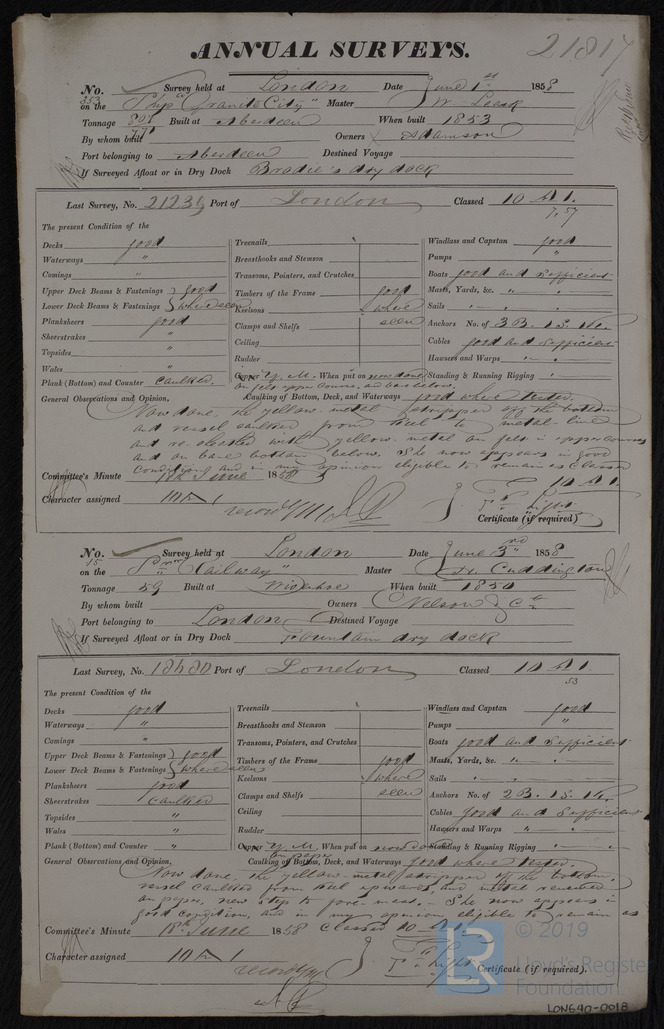 ANNUAL SURVEYS.
21817
No. 353 Survey held at London Date June 1st 1858
on the Ship "Granite City" Master W. Leask
Tonnage 801 771 Built at Aberdeen When built 1853
By whom built Owners Adamson
Port belonging to Aberdeen Destined Voyage
If Surveyed Afloat or in Dry Dock Brodie's dry dock
Last Survey, No. 21235 Port of London Classed 10 A 1.
7,57
The present Condition of the
Decks good Treenails Windlass and Capstan good
Waterways " Breasthooks and Stemson Pumps "
Comings " Transoms, Pointers, and Crutches Boats good and sufficient
Upper Deck Beams & Fastenings } good Timbers of the Frame good Masts, Yards, &c. " "
Lower Deck Beams & Fastenings } where seen Keelsons where Sails " "
Planksheers good Clamps and Shelfs seen Anchors No. of 3 B. 1 S.
Sheerstrakes " Ceiling Cables good and Sufficient
Topsides " Rudder Hawsers and Warps " "
Wales " Y. M. When put on now done Standing & Running Rigging " "
Plank (Bottom) and Counter Caulked. on felt upper courses, and bare below.
General Observations and Opinion, Caulking of Bottom, Deck, and Waterways good where tested.
Now done, the yellow metal stripped off the bottom
and vessel caulked from keel to metal line
and re-sheathed with yellow metal on felt in upper courses
and on bare bottom below. She now appears in good
condition, and in my opinion eligible to remain as Classed
10 A 1.
Committee's Minute June 1858
Character assigned 10 A 1
Certificate (if required)
No. 15 Survey held at London Date June 3rd 1858
on the "Railway" Master Cuddington
Tonnage 59 Built at When built 1850
By whom built Owners Nelson & Co.
Port belonging to London Destined Voyage
If Surveyed Afloat or in Dry Dock Fountain dry dock
Last Survey, No. 18480 Port of London Classed 10 A 1.
53
The present Condition of the
Decks good Treenails Windlass and Capstan good
Waterways " Breasthooks and Stemson Pumps "
Comings " Transoms, Pointers, and Crutches Boats good and sufficient
Upper Deck Beams & Fastenings } good Timbers of the Frame good Masts, Yards, &c. " "
Lower Deck Beams & Fastenings } where seen Keelsons where Sails " "
Planksheers good Clamps and Shelfs seen Anchors No. of 2 B. 1 S.
Sheerstrakes caulked Ceiling Cables good and Sufficient
Topsides " Rudder Hawsers and Warps " "
Wales " Copper Y. M. When put on now done Standing & Running Rigging " "
Plank (Bottom) and Counter " on paper
General Observations and Opinion, Caulking of Bottom, Deck, and Waterways good where tested.
Now done, the yellow metal stripped off the bottom,
vessel caulked from keel upwards, and metal renewed
on paper, new step to fore mast. She now appears in
good condition, and in my opinion eligible to remain as
Classed 10 A 1.
Committee's Minute 18th June 1858
Character assigned 10 A 1
Certificate (if required).
LR © 2019
Lloyd's Register
Foundation
LON640-0018